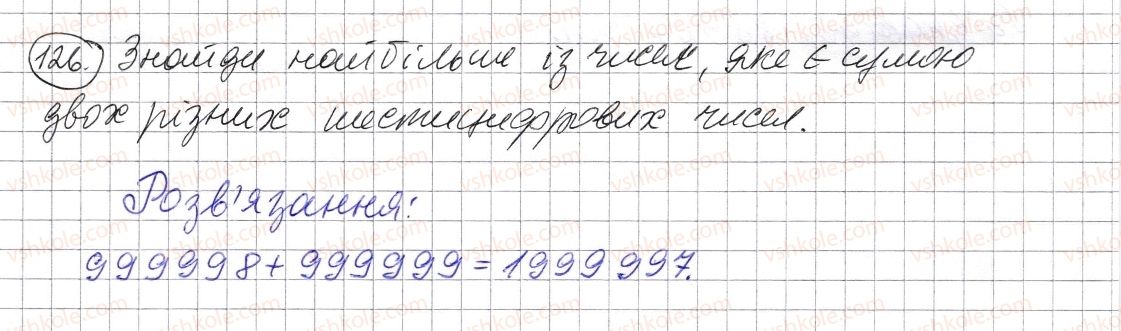 126. Знайди найбільше із чисел, яке є сумою
двох різних шестицифрових чисел.
Розв'язання:
999998 + 999999 = 1999 997.